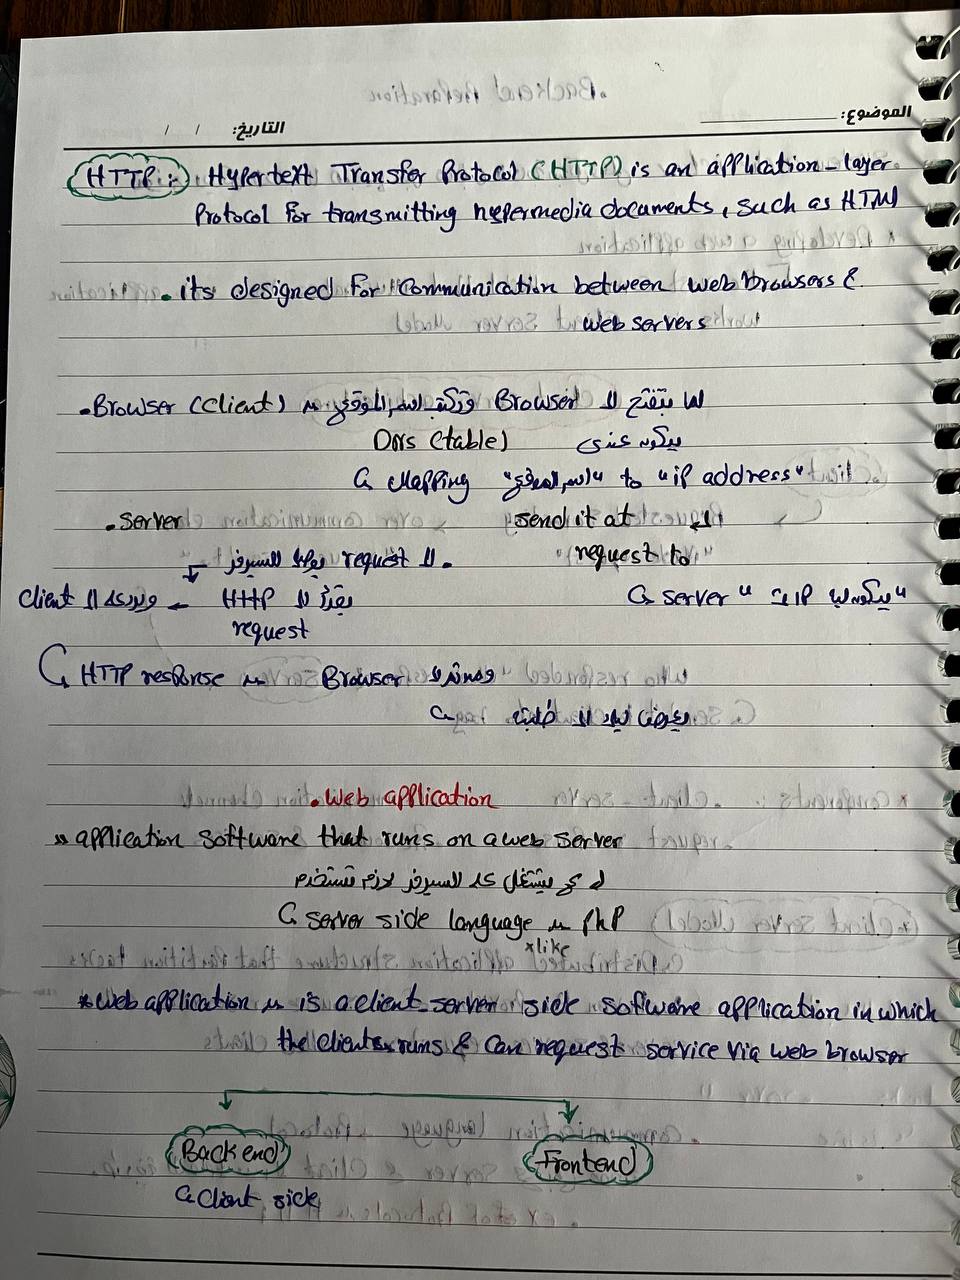 الموضوع:
التاريخ: / /
HTTP :- Hypertext Transfer Protocol (HTTP) is an application-layer
Protocol for transmitting hypermedia documents, such as HTML
. its designed for communication between web browsers &
web servers
. Browser (client) لما بتفتح ال Browser وتكتب اسم الموقع
بيكون عندى DNS (table)
Mapping "اسم الموقع" to "ip address"
. server
send it at
request to
server "بيكون ليه IP"
. ال request يوصل للسيرفر
يقرأ ال HTTP request
ويرد على ال Client
HTTP response Browser
يعرض ليك ال طلبته
. Web application
» application software that runs on a web server
يشتغل على السيرفر لازم تستخدم
server side language PhP
*like
* web application is a client-server side software application in which
the clients runs & can request service via web browser
Back end
Frontend
Client side